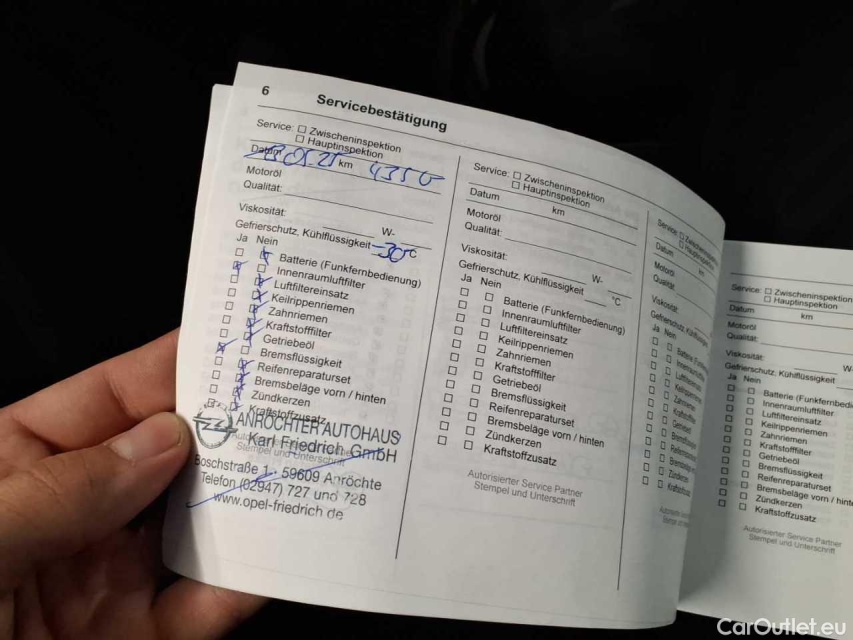 6
Servicebestätigung
Service: Zwischeninspektion
Hauptinspektion
Datum km
Motoröl
Qualität:
Viskosität: W-
Gefrierschutz, Kühlflüssigkeit -30 °C
Ja Nein
Batterie (Funkfernbedienung)
Innenraumluftfilter
Luftfiltereinsatz
Keilrippenriemen
Zahnriemen
Kraftstofffilter
Getriebeöl
Bremsflüssigkeit
Reifenreparaturset
Bremsbeläge vorn / hinten
Zündkerzen
Kraftstoffzusatz
ANRÖCHTER AUTOHAUS
Karl Friedrich GmbH
Stempel und Unterschrift
Boschstraße 1 · 59609 Anröchte
Telefon (02947) 727 und 728
www.opel-friedrich.de
Service: Zwischeninspektion
Hauptinspektion
Datum km
Motoröl
Qualität:
Viskosität: W-
Gefrierschutz, Kühlflüssigkeit °C
Ja Nein
Batterie (Funkfernbedienung)
Innenraumluftfilter
Luftfiltereinsatz
Keilrippenriemen
Zahnriemen
Kraftstofffilter
Getriebeöl
Bremsflüssigkeit
Reifenreparaturset
Bremsbeläge vorn / hinten
Zündkerzen
Kraftstoffzusatz
Autorisierter Service Partner
Stempel und Unterschrift
Service:
Datum
Motoröl
Qualität:
Viskosität:
Ja Nein
Service: Zwischeninspektion
Hauptinspektion
Datum km
Motoröl
Qualität:
Viskosität:
Gefrierschutz, Kühlflüssigkeit
Ja Nein
Batterie (Funkfernbedie
Innenraumluftfilter
Luftfiltereinsatz
Keilrippenriemen
Zahnriemen
Kraftstofffilter
Getriebeöl
Bremsflüssigkeit
Reifenreparaturset
Bremsbeläge vorn / hint
Zündkerzen
Kraftstoffzusatz
Autorisierter Service Partner
Stempel und Unterschrift
CarOutlet.eu